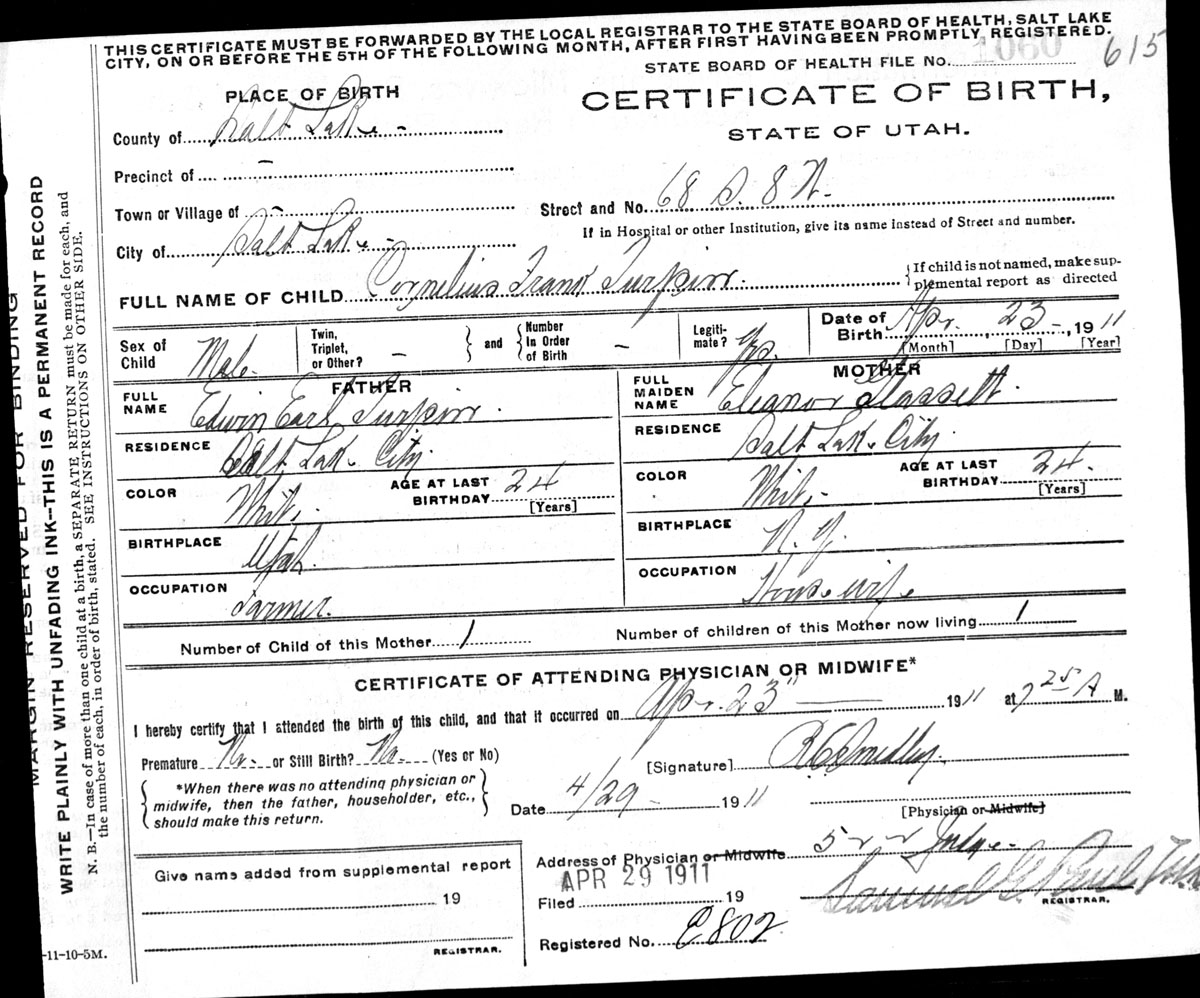 THIS CERTIFICATE MUST BE FORWARDED BY THE LOCAL REGISTRAR TO THE STATE BOARD OF HEALTH, SALT LAKE
CITY, ON OR BEFORE THE 5TH OF THE FOLLOWING MONTH, AFTER FIRST HAVING BEEN PROMPTLY REGISTERED.
1060
615
STATE BOARD OF HEALTH FILE No.
PLACE OF BIRTH
CERTIFICATE OF BIRTH,
STATE OF UTAH.
County of Salt Lake -
Precinct of -
Town or Village of -
Street and No. 68 S. 8 W.
If in Hospital or other Institution, give its name instead of Street and number.
City of Salt Lake -
FULL NAME OF CHILD Cornelius Frank Turpin.
If child is not named, make supplemental report as directed
Sex of Child Male.
Twin, Triplet, or Other? -
and
Number In Order of Birth -
Legitimate? Yes.
Date of Birth Apr. 23 -, 1911
[Month] [Day] [Year]
FATHER
FULL NAME Edwin Earl Turpin.
RESIDENCE Salt Lake City.
COLOR White
AGE AT LAST BIRTHDAY 24
[Years]
BIRTHPLACE Utah.
OCCUPATION Farmer.
MOTHER
FULL MAIDEN NAME Eleanor Glassett.
RESIDENCE Salt Lake City.
COLOR White
AGE AT LAST BIRTHDAY 24.
[Years]
BIRTHPLACE N. Y.
OCCUPATION Housewife
Number of Child of this Mother 1
Number of children of this Mother now living 1
CERTIFICATE OF ATTENDING PHYSICIAN OR MIDWIFE*
I hereby certify that I attended the birth of this child, and that it occurred on Apr. 23" 1911 at 7 25 A M.
Premature No. or Still Birth? No. (Yes or No)
[Signature]
*When there was no attending physician or
midwife, then the father, householder, etc.,
should make this return.
Date 4/29 - 1911
[Physician or Midwife]
Address of Physician or Midwife 522 Judge
Give name added from supplemental report
19
REGISTRAR.
APR 29 1911
Filed 19
REGISTRAR.
Registered No. E802
-11-10-5M.
MARGIN RESERVED FOR BINDING
WRITE PLAINLY WITH UNFADING INK--THIS IS A PERMANENT RECORD
N. B.—In case of more than one child at a birth, a SEPARATE RETURN must be made for each, and
the number of each, in order of birth, stated. SEE INSTRUCTIONS ON OTHER SIDE.